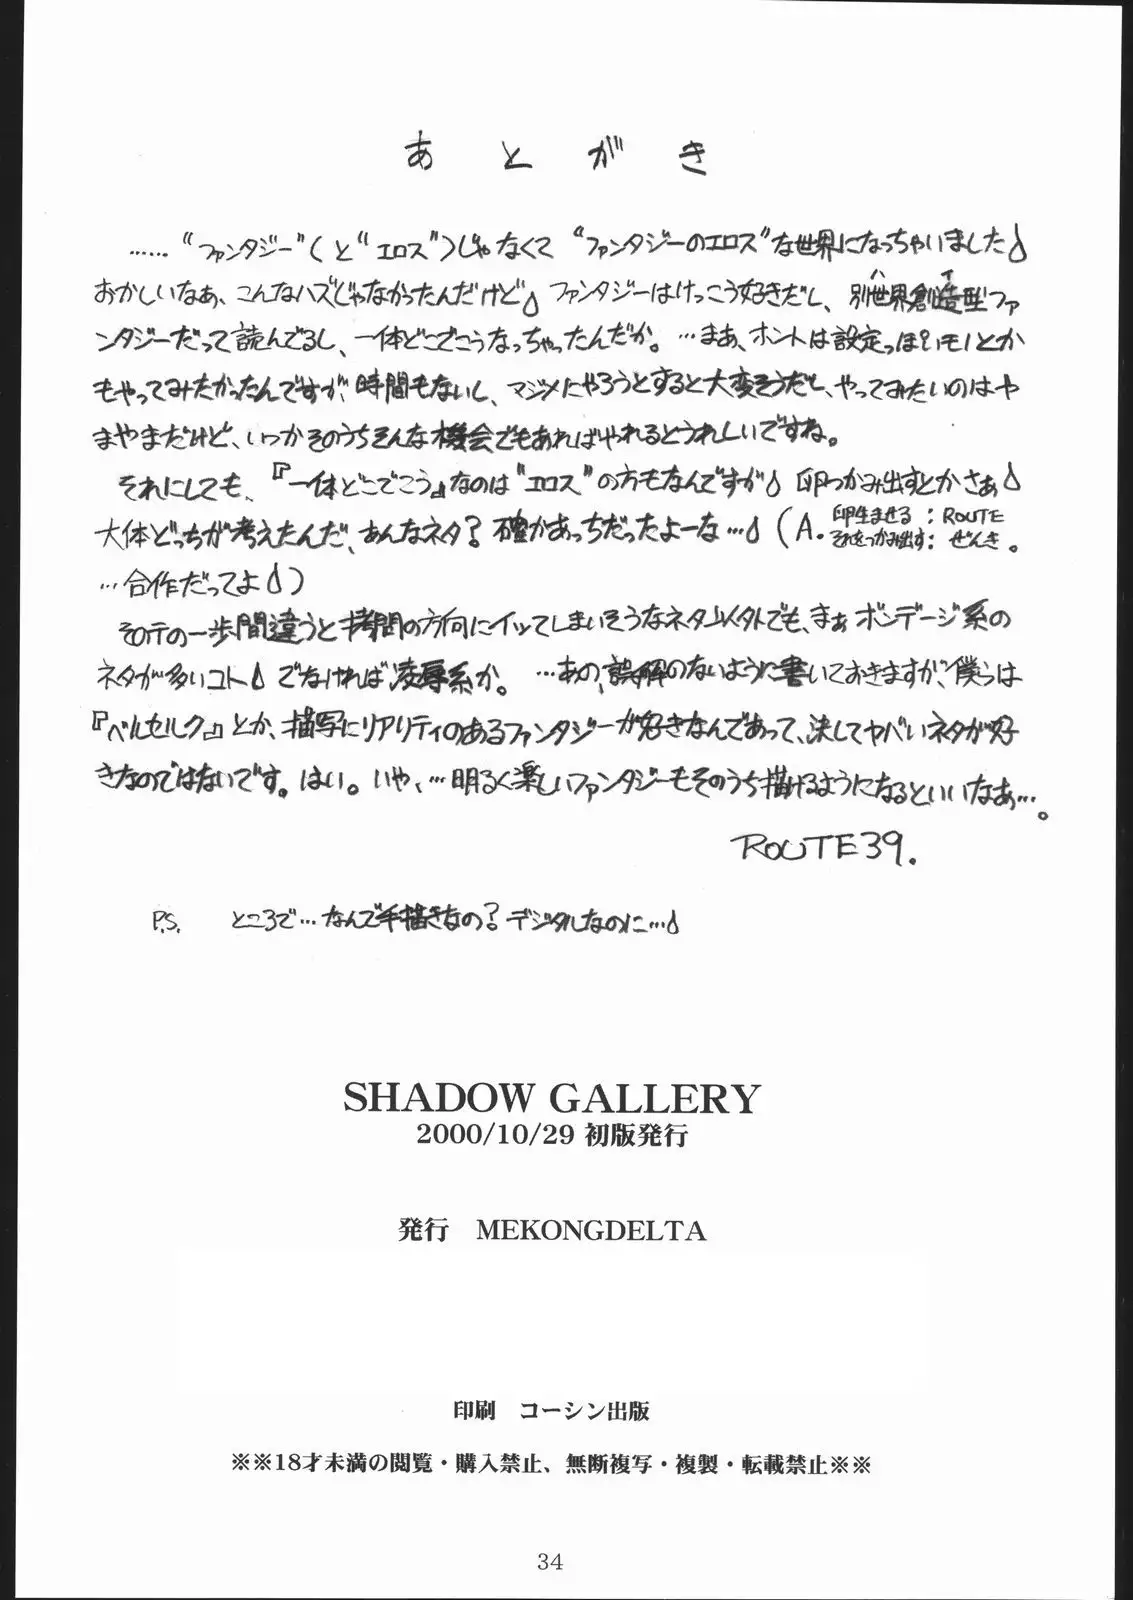 あとがき
……“ファンタジー”(と“エロス”)じゃなくて“ファンタジーのエロス”な世界になっちゃいました♪
おかしいなぁ、こんなハズじゃなかったんだけど♪ ファンタジーはけっこう好きだし、別世界創造型ファ
ハイ
ンタジーだって読んでるし、一体どこでこうなっちゃったんだか。…まぁ、ホントは設定っぽいモノとか
もやってみたかったんですが、時間もないし、マジメにやろうとすると大変そうだし、やってみたいのはや
まやまだけど、いつかそのうちそんな機会でもあればやれるとうれしいですね。
それにしても、『一体どこでこう』なのは“エロス”の方もなんですが♪ 卵つかみ出すとかさぁ♪
大体どっちが考えたんだ、あんなネタ?確かあっちだったよーな…♪(A. 卵生ませる:ROUTE
それをつかみ出す:ぜんき。
…合作だってよ♪)
その手の一歩間違うと拷問の方向にイッてしまいそうなネタ以外でも、まぁボンデージ系の
ネタが多いコト♪ でなければ凌辱系か。…あの、誤解のないように書いておきますが、僕らは
『ベルセルク』とか、描写にリアリティのあるファンタジーが好きなんであって、決してヤバいネタが好
きなのではないです。はい。いや、…明るく楽しいファンタジーもそのうち描けるようになるといいなあ…。
ROUTE39.
P.S. ところで…なんで手描きなの?デジタルなのに…♪
SHADOW GALLERY
2000/10/29 初版発行
発行 MEKONGDELTA
印刷 コーシン出版
※※18才未満の閲覧・購入禁止、無断複写・複製・転載禁止※※
34